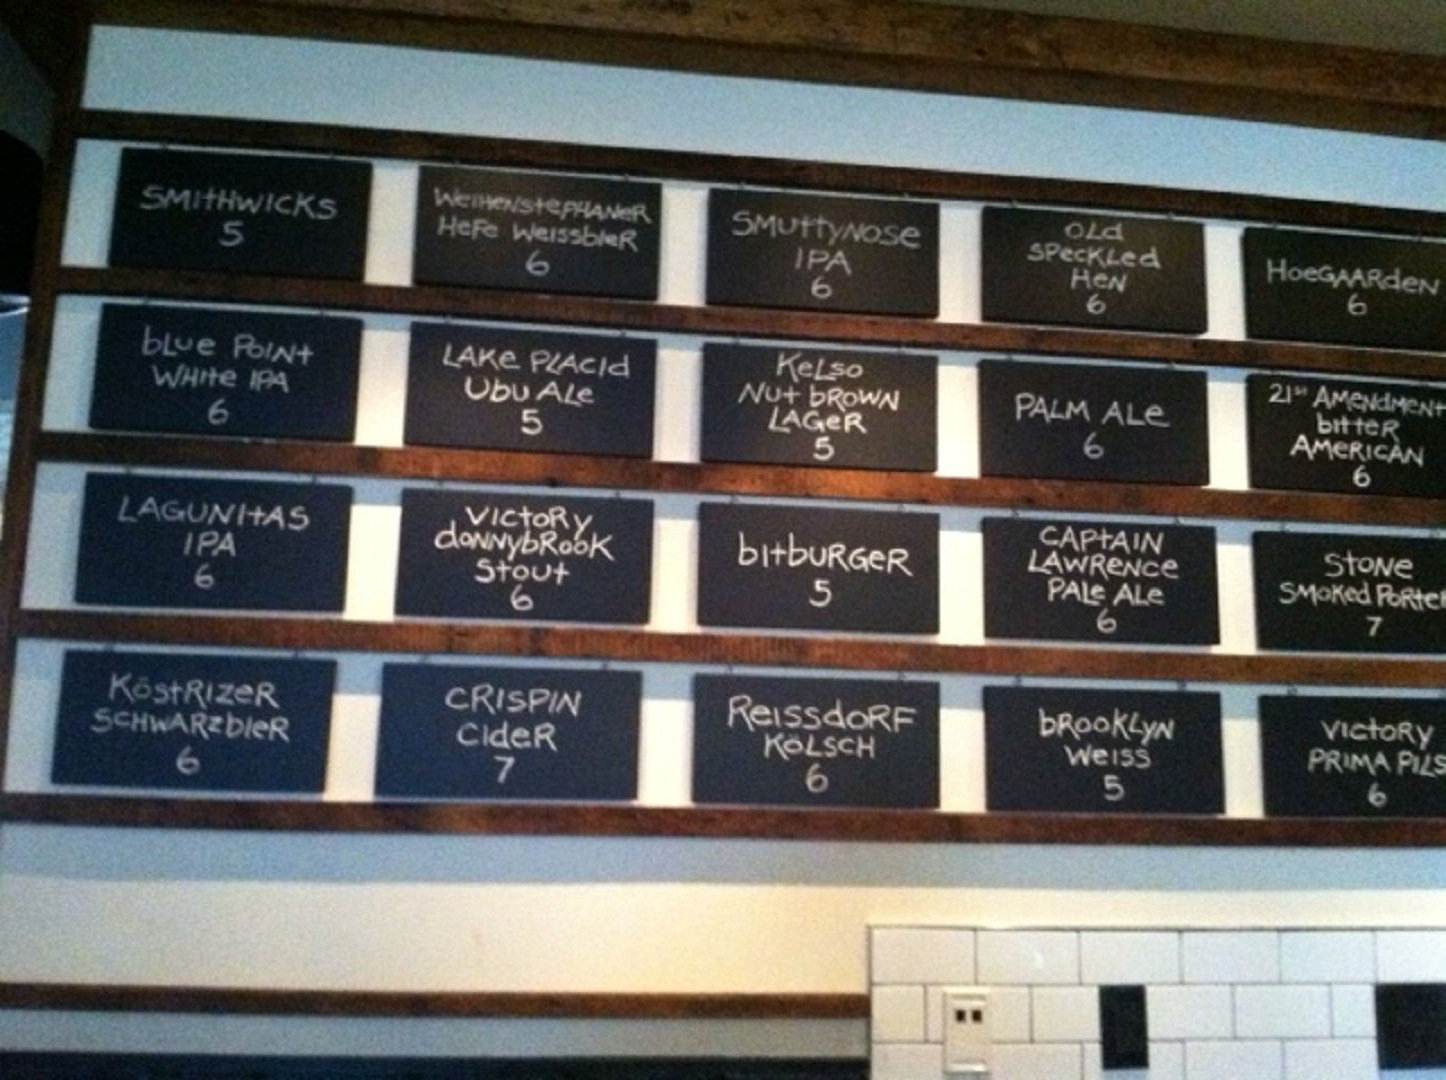 SMITHWICKS
5
WEIHENSTEPHANER
HEFE WEISSBIER
6
SMUTTYNOSE
IPA
6
OLD
SPECKLED
HEN
6
HOEGAARDEN
6
BLUE POINT
WHITE IPA
6
LAKE PLACID
UBU ALE
5
KELSO
NUT BROWN
LAGER
5
PALM ALE
6
21ST AMENDMENT
BITTER
AMERICAN
6
LAGUNITAS
IPA
6
VICTORY
DONNYBROOK
STOUT
6
BITBURGER
5
CAPTAIN
LAWRENCE
PALE ALE
6
STONE
SMOKED PORTER
7
KÖSTRIZER
SCHWARZBIER
6
CRISPIN
CIDER
7
REISSDORF
KÖLSCH
6
BROOKLYN
WEISS
5
VICTORY
PRIMA PILS
6